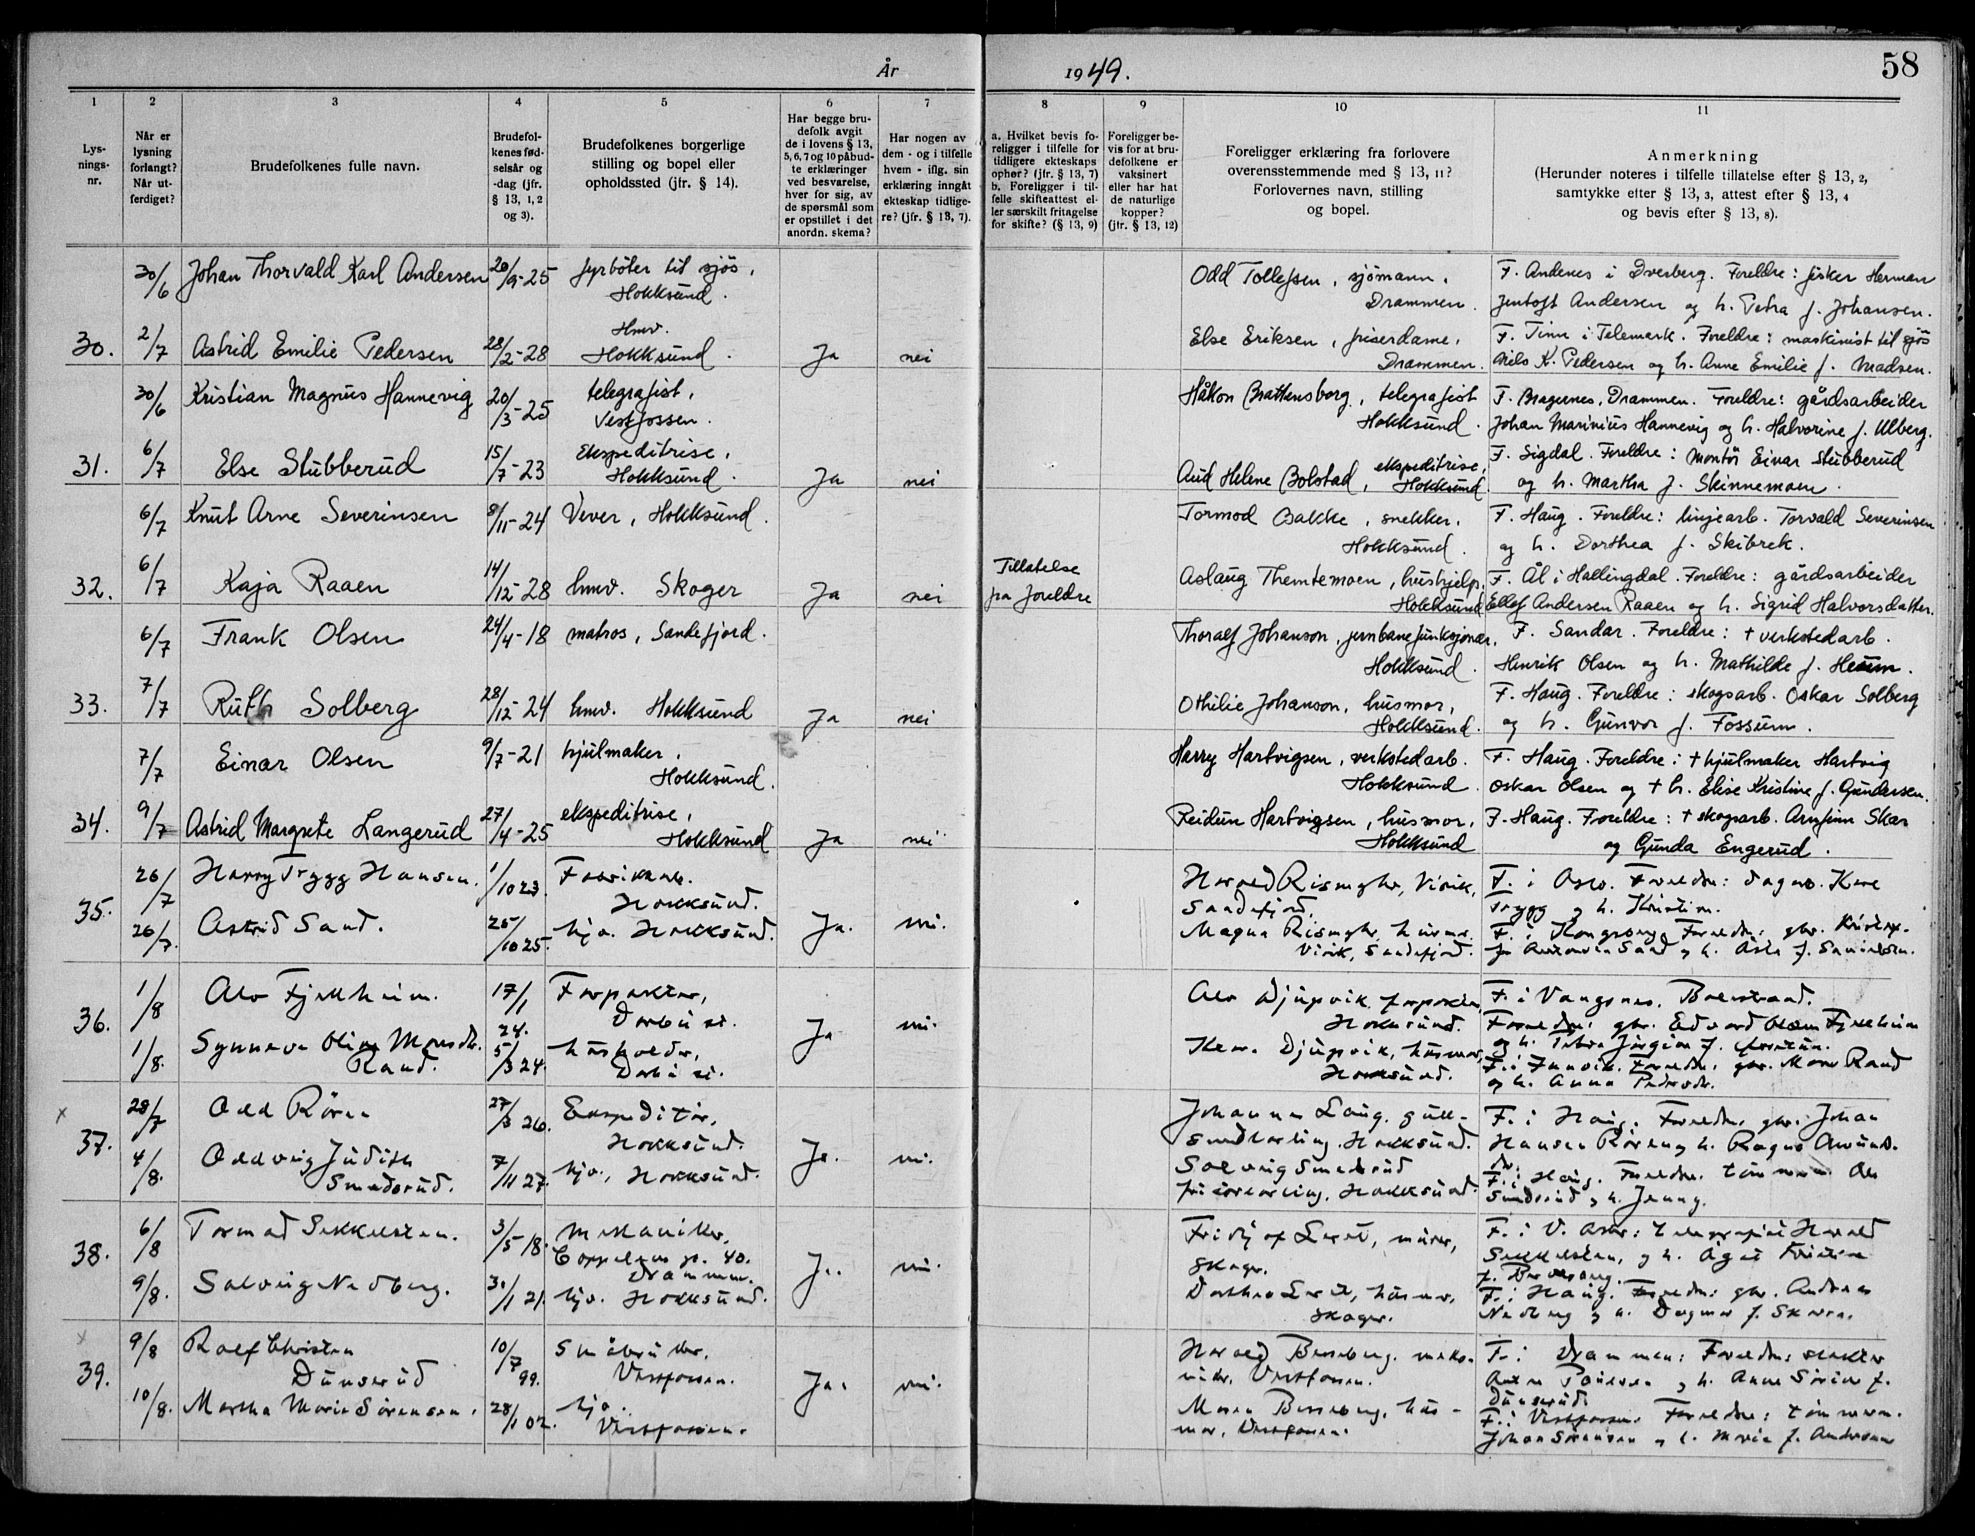 År
1949.
58
1 2 3 4 5 6 7 8 9 10 11
Lys-
nings-
nr.
Når er
lysning
forlangt?
Når ut-
ferdiget?
Brudefolkenes fulle navn.
Brudefol-
kenes fød-
selsår og
-dag (jfr.
§ 13, 1, 2
og 3).
Brudefolkenes borgerlige
stilling og bopel eller
opholdssted (jfr. § 14).
Har begge bru-
defolk avgit
de i lovens § 13,
5, 6, 7 og 10 påbud-
te erklæringer
ved besvarelse,
hver for sig, av
de spørsmål som
er opstillet i det
anordn. skema?
Har nogen av
dem - og i tilfelle
hvem - iflg. sin
erklæring inngått
ekteskap tidlige-
re? (jfr. § 13, 7).
a. Hvilket bevis fo-
religger i tilfelle for
tidligere ekteskaps
ophør? (jfr. § 13, 7)
b. Foreligger i til-
felle skifteattest el-
ler særskilt fritagelse
for skifte? (§ 13, 9)
Foreligger be-
vis for at bru-
defolkene er
vaksinert
eller har hat
de naturlige
kopper?
(jfr. § 13, 12)
Foreligger erklæring fra forlovere
overensstemmende med § 13, 11?
Forlovernes navn, stilling
og bopel.
Anmerkning
(Herunder noteres i tilfelle tillatelse efter § 13, 2,
samtykke efter § 13, 3, attest efter § 13, 4
og bevis efter § 13, 8).
30/6 Johan Thorvald Karl Andersen 20/9-25 fyrbøter til sjøs, Hokksund. Odd Tollefsen, sjømann, Drammen. F. Andenes i Dverberg. Foreldre: fisker Herman
Jentoft Andersen og h. Petra f. Johansen.
30. 2/7 Astrid Emilie Pedersen 28/2-28 Hmv. Hokksund. Ja nei Else Eriksen, friserdame, Drammen. F. Tinn i Telemark. Foreldre: maskinist til sjøs
Niels K. Pedersen og h. Anne Emilie f. Madsen.
30/6 Kristian Magnus Hannevig 20/3-25 telegrafist, Vestfossen. Håkon Brattensborg, telegrafist Hokksund. F. Bragernes, Drammen. Foreldre: gårdsarbeider
Johan Marinius Hannevig og h. Halvorine f. Ulberg.
31. 6/7 Else Stubberud 15/7-23 Ekspeditrise, Hokksund. Ja nei Aud Helene Bolstad, ekspeditrise, Hokksund. F. Sigdal. Foreldre: Montør Einar Stubberud
og h. Martha f. Skinnemoen.
6/7 Knut Arne Severinsen 8/11-24 Vever, Hokksund. Tormod Bakke, snekker, Hokksund. F. Haug. Foreldre: linjearb. Torvald Severinsen
og h. Dorthea f. Skibrek.
32. 6/7 Kaja Raaen 14/12-28 hmv. Skoger Ja nei Tillatelse fra foreldre Aslaug Themtemoen, hushjelp, Hokksund F. Ål i Hallingdal. Foreldre: gårdsarbeider
Ellef Andersen Raaen og h. Sigrid Halvorsdatter.
6/7 Frank Olsen 24/4-18 matros, Sandefjord. Thoralf Johanson, jernbanefunksjonær, Hokksund. F. Sandar. Foreldre: + verkstedarb.
Henrik Olsen og h. Mathilde f. Heum.
33. 7/7 Ruth Solberg 28/12-24 hmv. Hokksund Ja nei Othilie Johanson, husmor, Hokksund. F. Haug. Foreldre: skogsarb. Oskar Solberg
og h. Gunvor f. Fossum.
7/7 Einar Olsen 9/7-21 hjulmaker, Hokksund. Harry Hartvigsen, verkstedarb. Hokksund. F. Haug. Foreldre: + hjulmaker Hartvig
Oskar Olsen og + h. Elise Kristine f. Gundersen.
34. 9/7 Astrid Margrete Langerud 27/4-25 ekspeditrise, Hokksund Ja nei Reidun Hartvigsen, husmor, Hokksund F. Haug. Foreldre: + skogsarb. Arnfinn Skar
og Gunda Engerud.
35. 26/7 Harry Trygg Hansen. 1/10 23. Fabrikkarb. Hokksund. Ja. nei. Harald Risinghr, Virik, Sandefjord. F. i Oslo. Foreldre: Kåre
Trygg og h. Kristine.
26/7. Astrid Sand. 25/10 25. hjv. Hokksund. Magna Risinghr, husmor. Virik, Sandefjord. F. i Kongsberg. Foreldre: gbr.
Sand og h. Åsta f.
36. 1/8 Alv Fjellheim. 17/1 24. Forpakter, Darbu st. Ja nei. Alv Djupvik, forpakter, Hokksund. F. i Vangsnes, Balestrand.
Foreldre: gbr. Edvard Fjellheim
og h.
1/8. Synneve Oline Monsdr. Rand. 5/3 24. husholdr, Darbu st. Djupvik, husmor, Hokksund. F. i Innvik. Foreldre: gbr. Mons Rand
og h. Anna Pedersdr.
x 37. 28/7 Odd Røren 27/3 26. Ekspeditør, Hokksund. Ja. nei. Johannes Laug, gull-
smedlærling, Hokksund. F. i Haug. Foreldre: gbr. Johan
Hansen Røren og h. Ragna Amunds-
dr.
4/8. Oddveig Judith Smedsrud. 7/11 27. hjv., Hokksund. Solveig Smedsrud
frisørlærling, Hokksund. F. i Haug. Foreldre: tømmerm.
Smedsrud og h. Jenny.
38. 6/8 Tormod Sekkelsten. 3/5 18. Mekaniker, Coppelens gt. 40. Drammen. Ja. nei. Fridtjof Leret, murer, Skoger. F. i V. Aker: telegrafist Harald
Sekkelsten, og h. Ågot
9/8. Solveig Nedberg. 30/1 21. hjv. Hokksund. Dorthea Leret, husmor, Skoger. F. i Haug. Foreldre: gbr. Andreas
Nedberg og h. Dagmar f.
x 39. 9/8 Rolf Christian Dunserud 10/7 99. Småbruker, Vestfossen. Ja. nei. Harald Besseberg, Vestfossen. F. i Drammen: Foreldre:
og h. Anne Sørine f.
Dunserud.
10/8. Martha Marie Sørensen. 28/1 02. hjv. Vestfossen. Besseberg, hus-
mor, Vestfossen. F. i Vestfossen. Foreldre: tømmerm.
Johan Sørensen og h. Marie f. Andersen